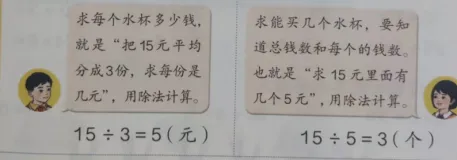 求每个水杯多少钱，
就是“把15元平均
分成3份，求每份是
几元”，用除法计算。
15÷3=5(元)
求能买几个水杯，要知
道总钱数和每个的钱数。
也就是“求 15 元里面有
几个5元”，用除法计算。
15÷5=3(个)